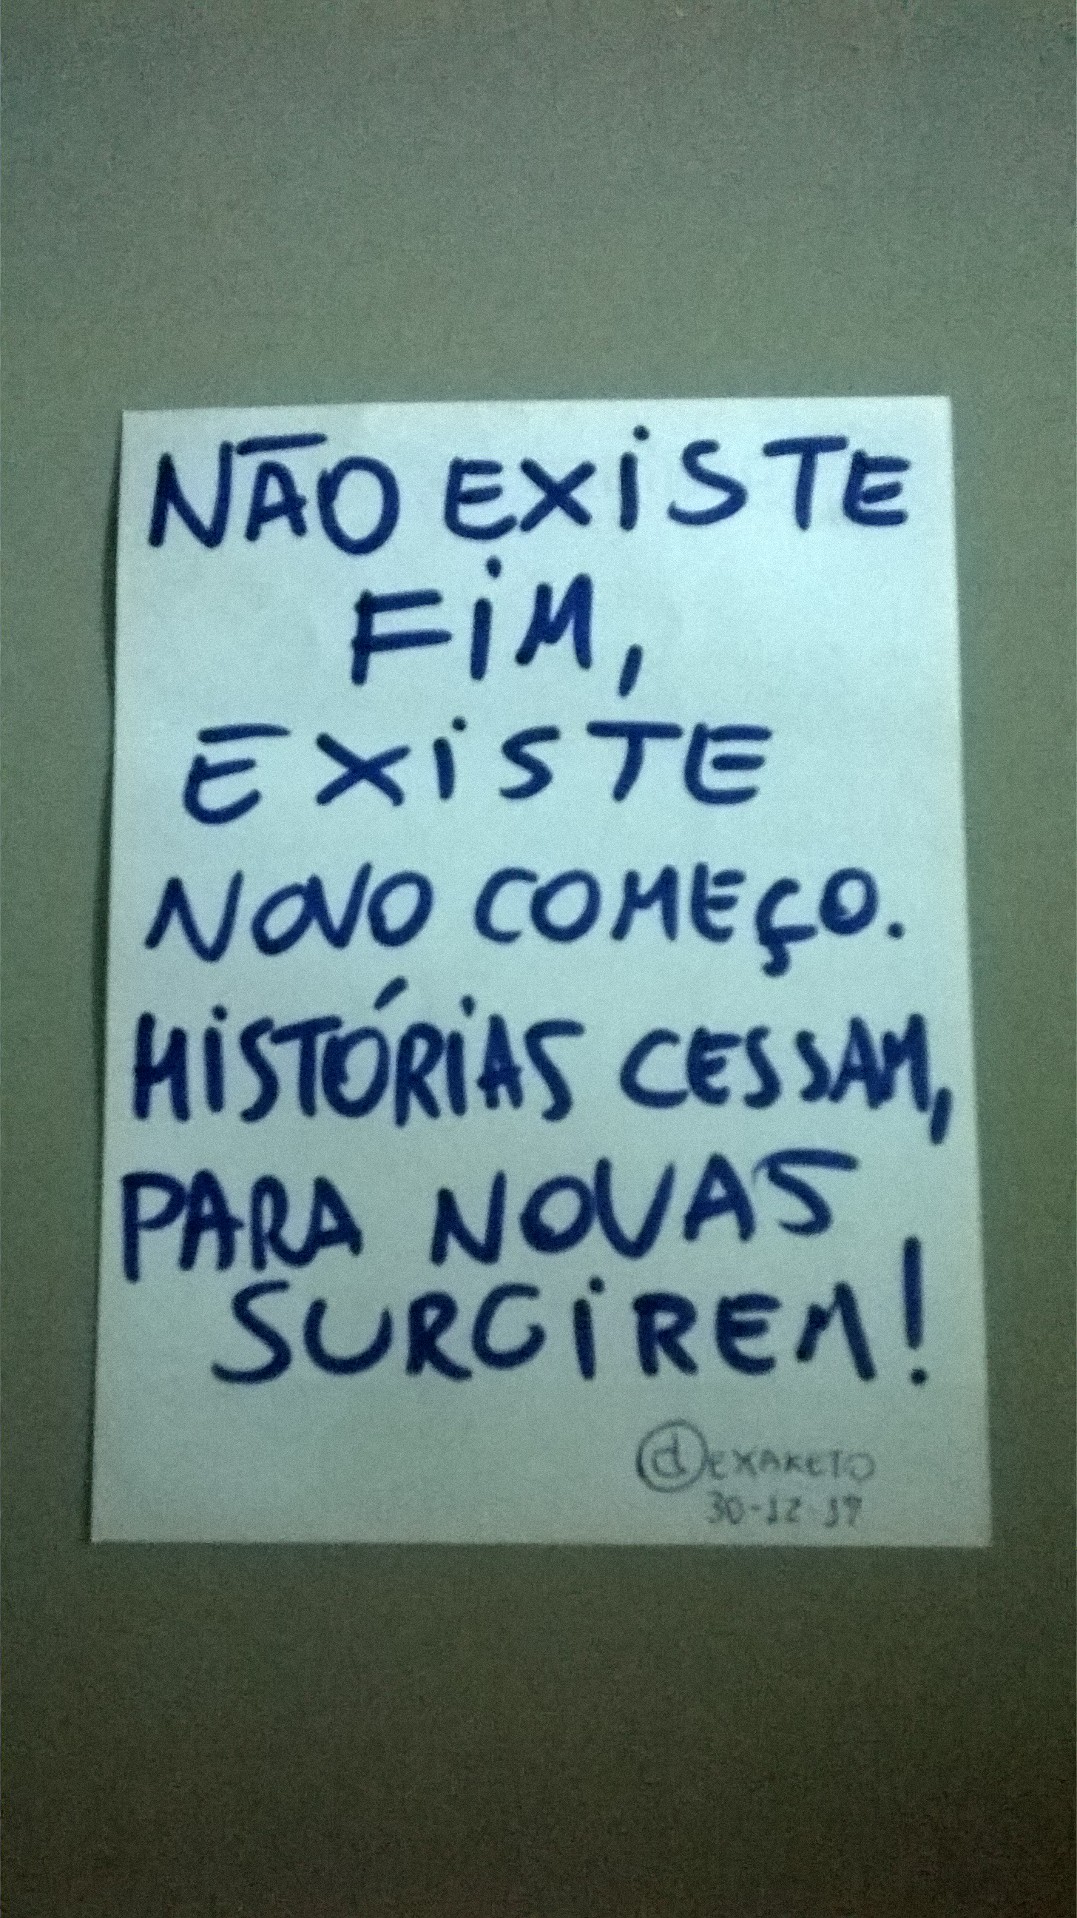 NÃO EXISTE
FIM,
EXISTE
NOVO COMEÇO.
HISTÓRIAS CESSAM,
PARA NOVAS
SURGIREM!
dEXAKETO
30-12-17